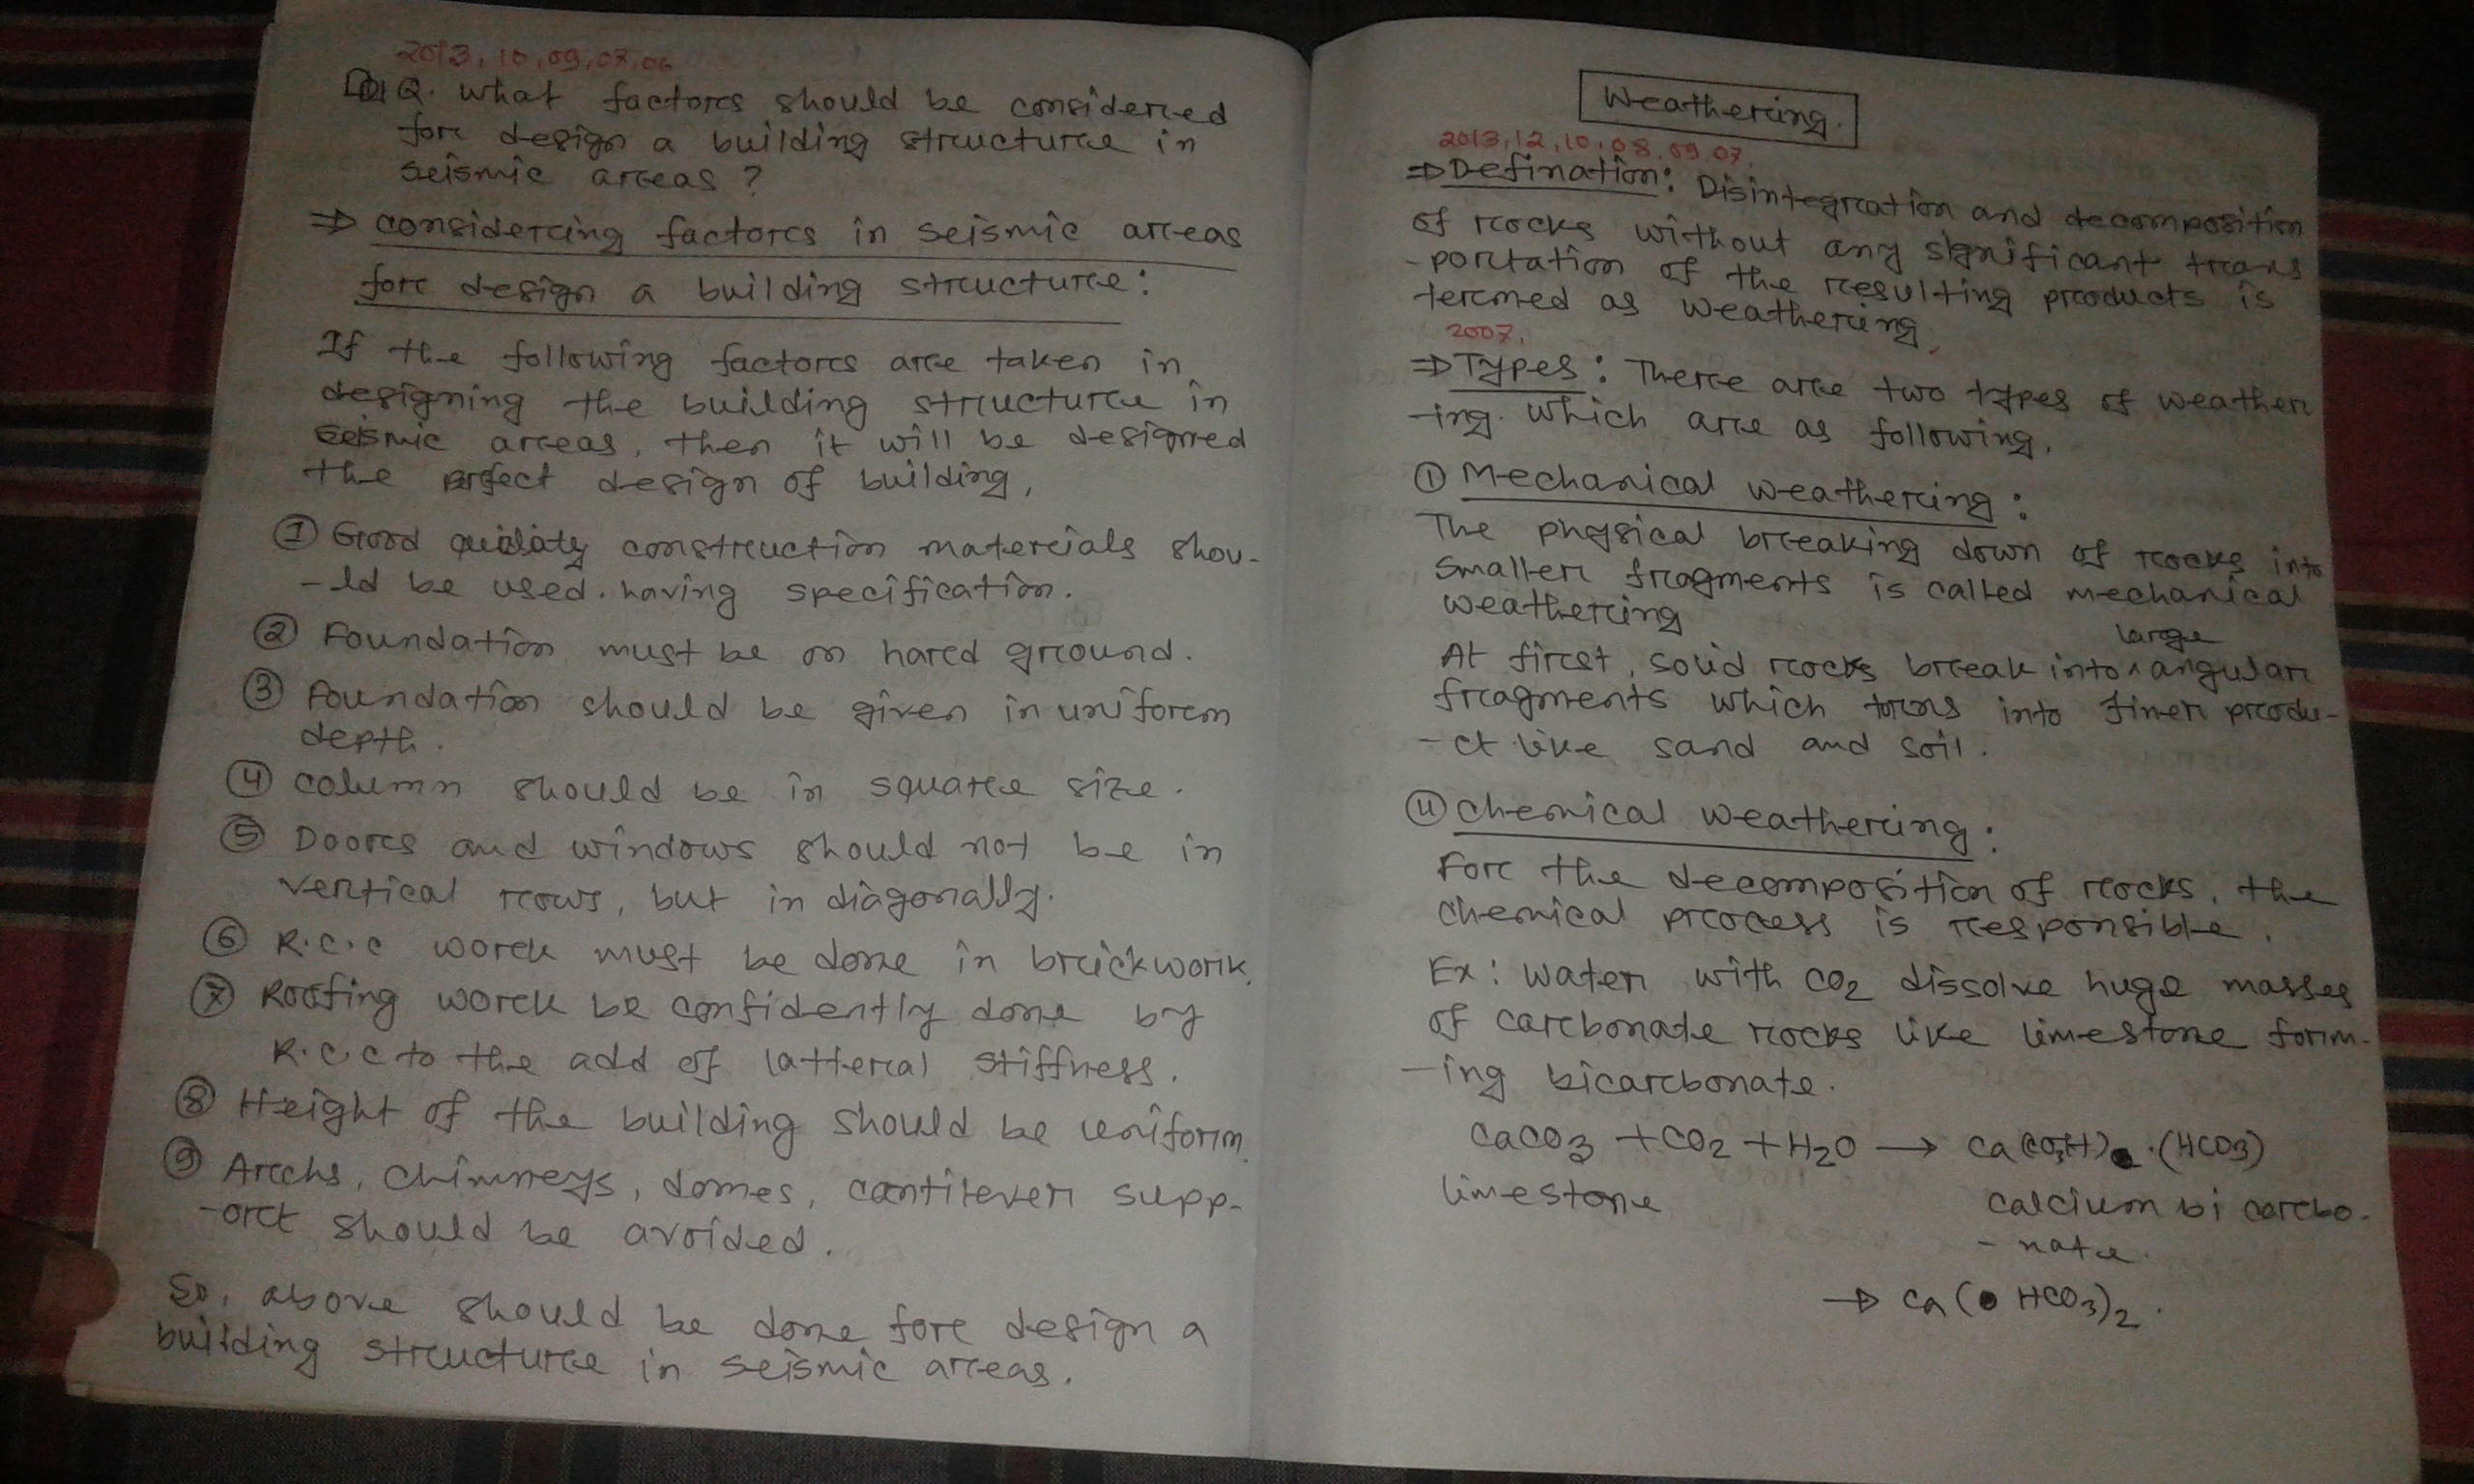 2013, 10, 09, 07, 06
Q. What factors should be considered
for design a building structure in
seismic areas ?
⇒ considering factors in seismic areas
for design a building structure :
If the following factors are taken in
designing the building structure in
seismic areas, then it will be designed
the perfect design of building,
① Good quality construction materials shou-
-ld be used. having specification.
② Foundation must be on hard ground.
③ Foundation should be given in uniform
depth.
④ column should be in square size.
⑤ Doors and windows should not be in
vertical rows, but in diagonally.
⑥ R.C.C work must be done in brickwork.
⑦ Roofing work be confidently done by
R.C.C to the add of latteral stiffness.
⑧ Height of the building should be uniform.
⑨ Archs, chimneys, domes, cantilever supp-
-ort should be avoided.
So, above should be done for design a
building structure in seismic areas.
Weathering.
2013, 12, 10, 08, 09, 07,
⇒ Defination : Disintegration and decomposition
of rocks without any significant trans
-portation of the resulting products is
termed as weathering.
2007,
⇒ Types : There are two types of weather
-ing. which are as following.
① Mechanical weathering :
The physical breaking down of rocks into
smaller fragments is called mechanical
weathering
At first, solid rocks break into large angular
fragments which torns into finer produ-
-ct like sand and soil.
⑪ chemical weathering :
For the decomposition of rocks, the
chemical process is responsible.
Ex : water with CO2 dissolve huge masses
of carbonate rocks like limestone form-
-ing bicarbonate.
CaCO3 + CO2 + H2O → Ca . (HCO3)
limestone
calcium bi carbo-
-nate.
⇒ Ca ( HCO3)2.